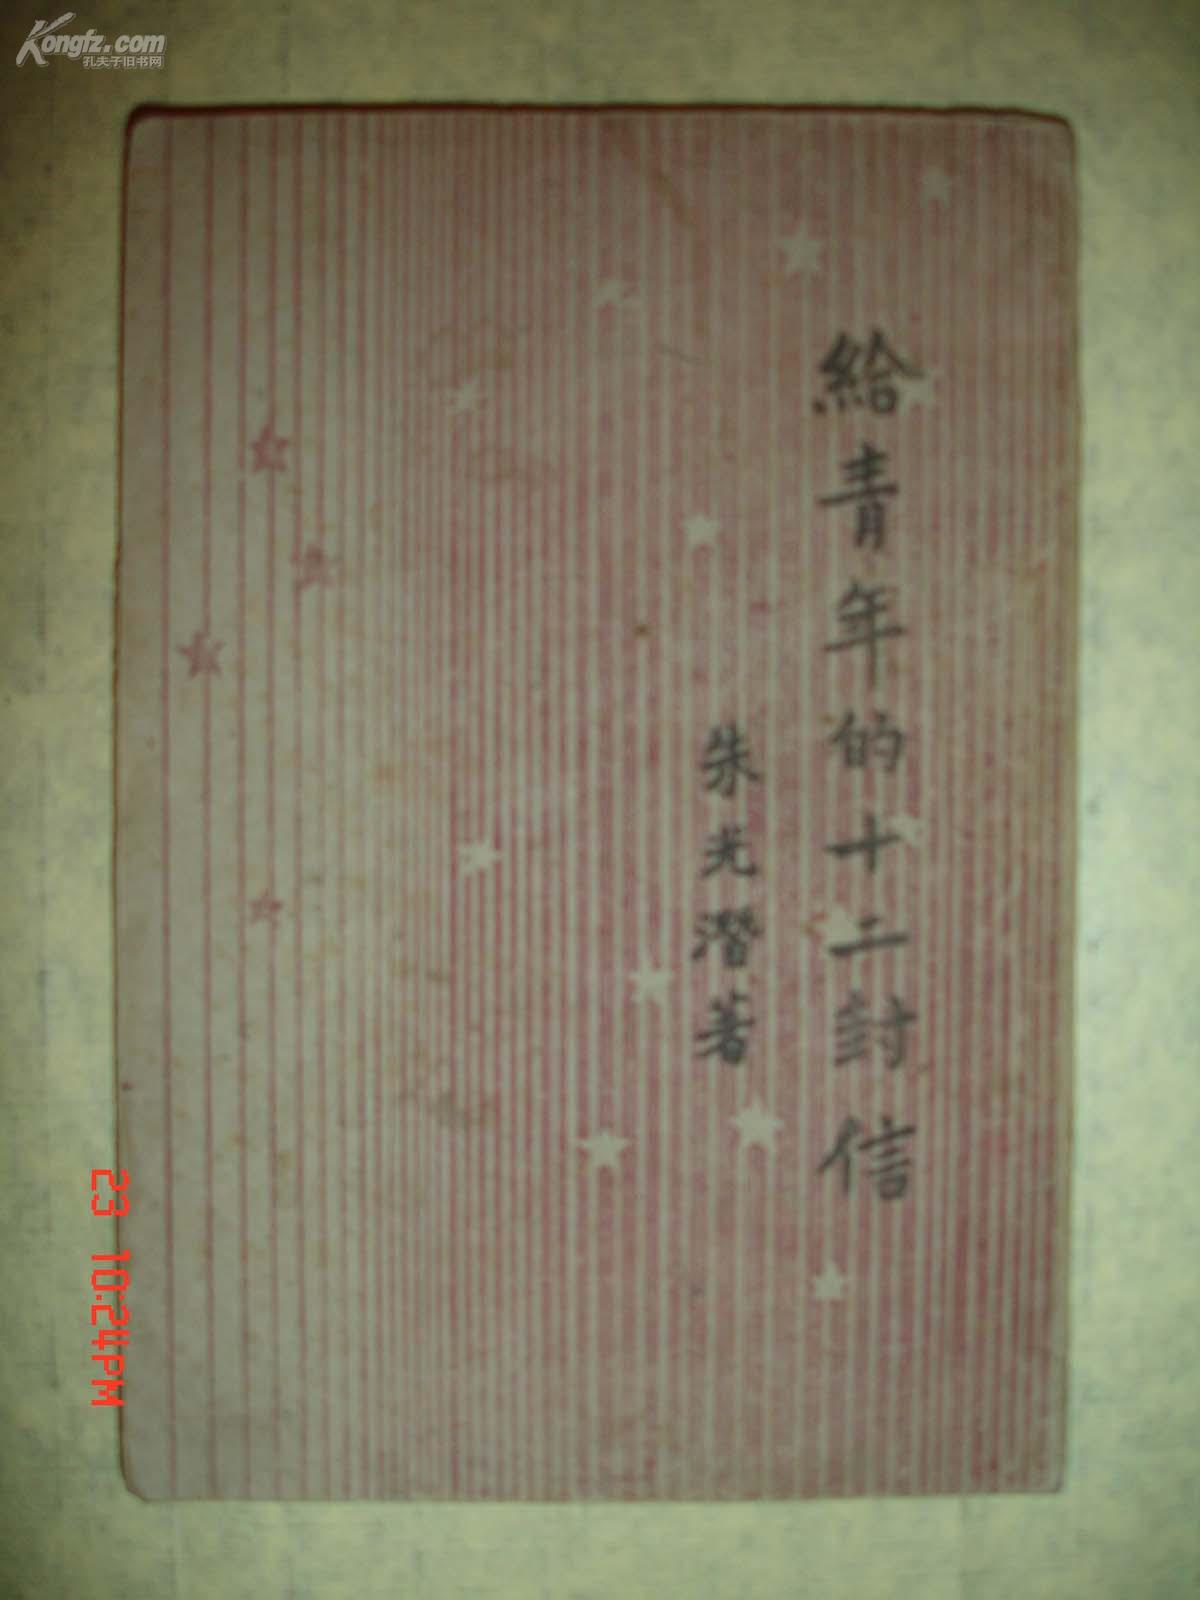 Kongfz.com
孔夫子旧书网
給青年的十二封信
朱光潛著
23 10:24PM